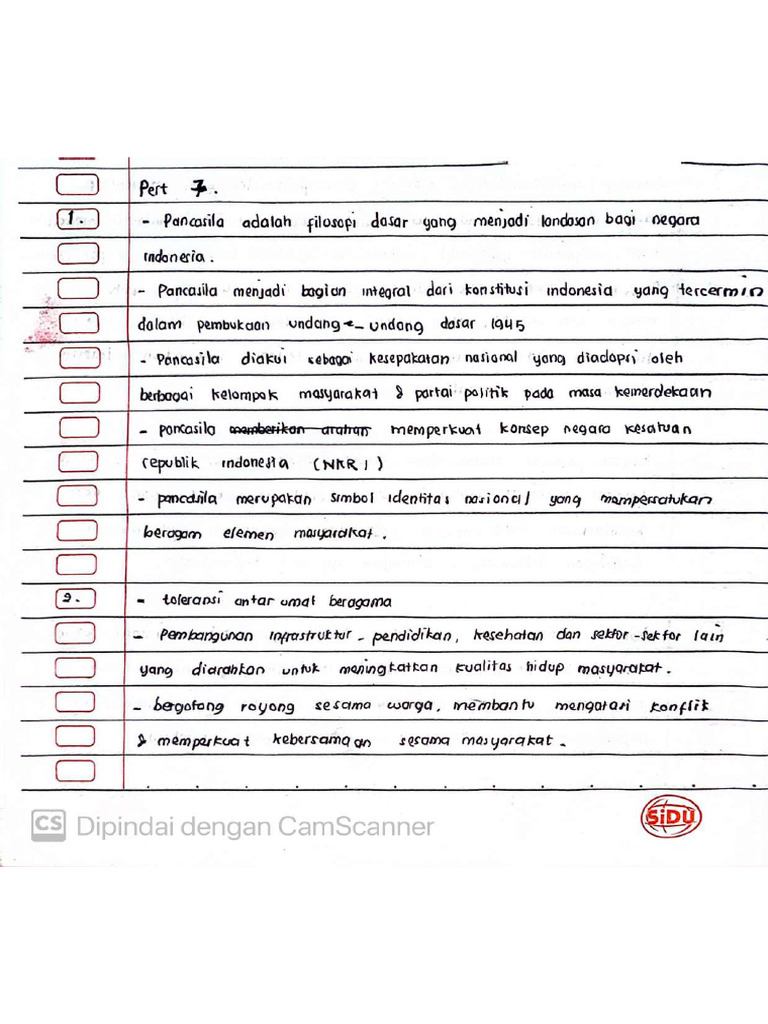 Pert 7.
1. - Pancasila adalah filosopi dasar yang menjadi landasan bagi negara
indonesia.
- Pancasila menjadi bagian integral dari konstitusi indonesia yang tercermin
dalam pembukaan undang - undang dasar 1945
- Pancasila diakui sebagai kesepakatan nasional yang diadopsi oleh
berbagai kelompok masyarakat & partai politik pada masa kemerdekaan
- pancasila memberikan arahan memperkuat konsep negara kesatuan
republik indonesia (NKRI)
- pancasila merupakan simbol identitas nasional yang mempersatukan
beragam elemen masyarakat.
2. - toleransi antar umat beragama
- Pembangunan infrastruktur - pendidikan, kesehatan dan sektor-sektor lain
yang diarahkan untuk meningkatkan kualitas hidup masyarakat.
- bergotong royong sesama warga, membantu mengatasi konflik
& memperkuat kebersamaan sesama masyarakat.
CS Dipindai dengan CamScanner
SiDU